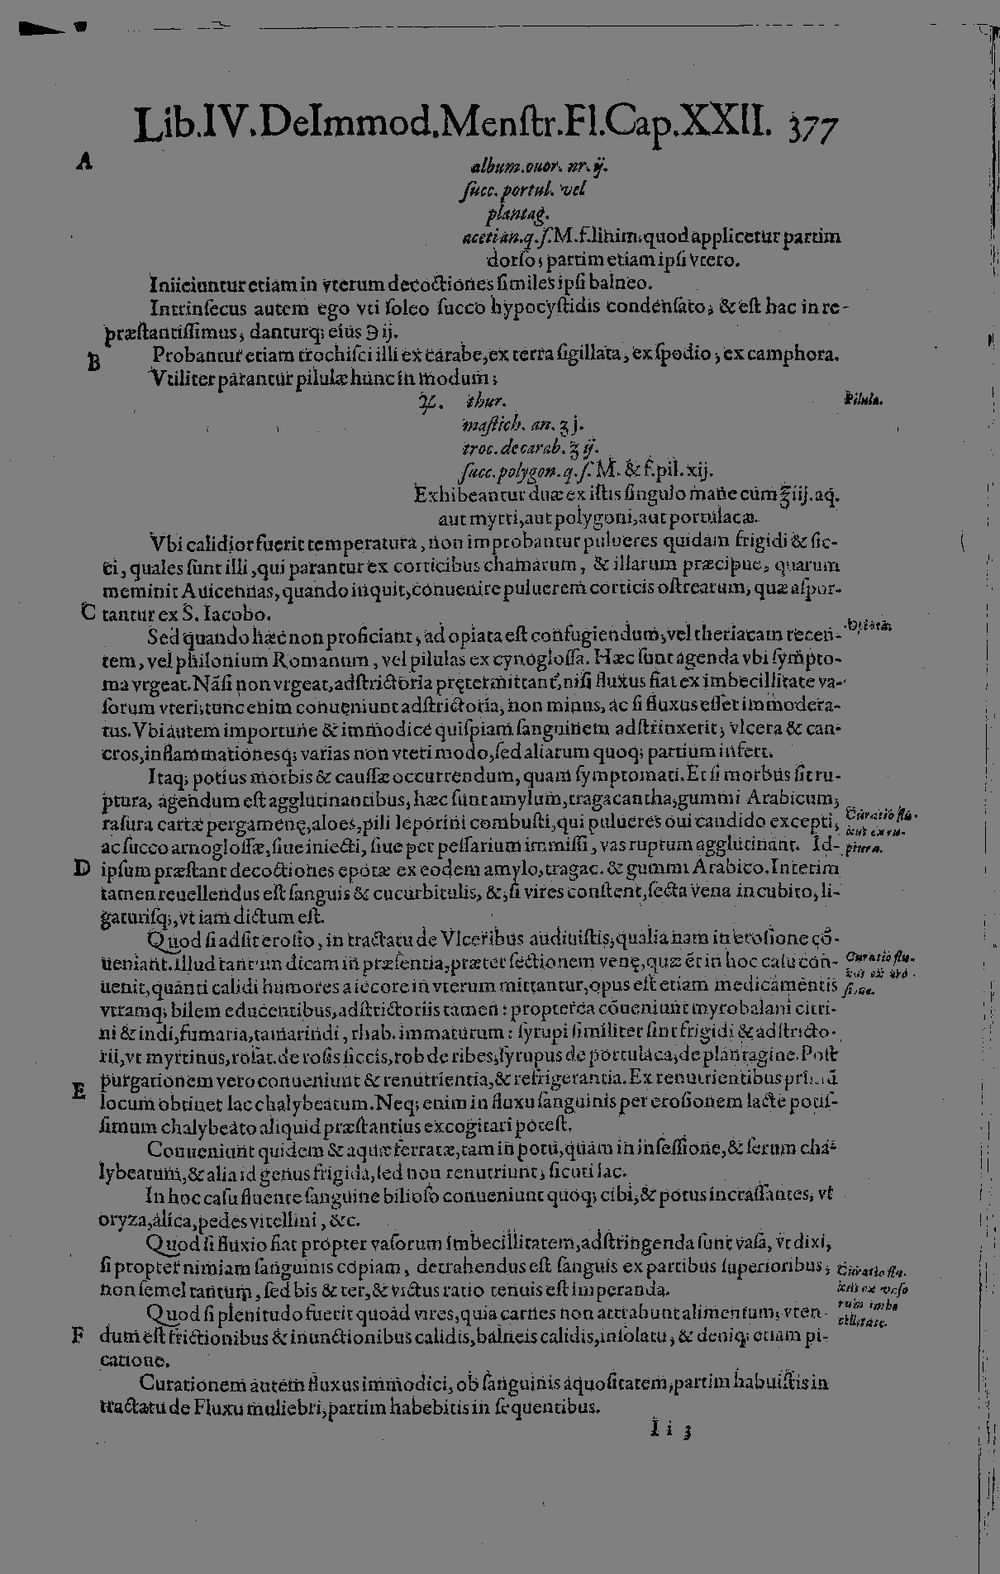 Lib.IV.DeImmod.Menſtr.Fl.Cap.XXII. 377
A
album.ouor. nr. ij.
ſucc. portul. vel
plantag.
acetian.q.ſ.M.f.linim.quod applicetur partim
dorſo, partim etiam ipſi vtero.
Iniiciuntur etiam in vterum decoctiones ſimiles ipſi balneo.
Intrinſecus autem ego vti ſoleo ſucco hypocyſtidis condenſato, & eſt hac in re-
præſtantiſſimus, danturq; eius ℈ ij.
B
Probantur etiam trochiſci illi ex carabe, ex terra ſigillata, ex ſpodio, ex camphora.
Vtiliter parantur pilulæ hunc in modum;
♃. thur.
Pilulæ.
maſtich. an. ʒ j.
troc. de carab. ʒ ij.
ſucc. polygon. q. ſ. M. & f. pil. xij.
Exhibeantur duæ ex iſtis ſingulo mane cum ℥iij. aq.
aut myrti, aut polygoni, aut portulacæ.
Vbi calidior fuerit temperatura, non improbantur pulueres quidam frigidi & ſic-
ci, quales ſunt illi, qui parantur ex corticibus chamarum, & illarum præcipue, quarum
meminit Auicennas, quando inquit, conuenire puluerem corticis oſtrearum, quæ aſpor-
C tantur ex S. Iacobo.
Sed quando hæc non proficiant, ad opiata eſt confugiendum, vel theriacam recen-
Opiata.
tem, vel philonium Romanum, vel pilulas ex cynogloſſa. Hæc ſunt agenda vbi ſympto-
ma vrgeat. Nā ſi non vrgeat, adſtrictoria prętermittant², niſi fluxus fiat ex imbecillitate va-
ſorum vteri; tunc enim conueniunt adſtrictoria, non minus, ac ſi fluxus eſſet immodera-
tus. Vbi autem importune & immodice quiſpiam ſanguinem adſtrinxerit, vlcera & can-
cros, inflammationesq; varias non vteri modo, ſed aliarum quoq; partium infert.
Itaq; potius morbis & cauſſæ occurrendum, quam ſymptomati. Et ſi morbus ſit ru-
ptura, agendum eſt agglutinantibus, hæc ſunt amylum, tragacantha, gummi Arabicum,
raſura cartæ pergamenę, aloes, pili leporini combuſti, qui pulueres oui candido excepti,
Curatio flu-
xus ex ru-
ptura.
ac ſucco arnogloſſæ, ſiue iniecti, ſiue per peſſarium immiſſi, vas ruptum agglutinant. Id-
D ipſum præſtant decoctiones epotæ ex eodem amylo, tragac. & gummi Arabico. Interim
tamen reuellendus eſt ſanguis & cucurbitulis, &, ſi vires conſtent, ſecta vena in cubito, li-
gaturisq;, vt iam dictum eſt.
Quod ſi adſit eroſio, in tractatu de Vlceribus audiuiſtis, qualia nam in eroſione cō-
ueniant. Illud tantum dicam in præſentia, præter ſectionem venę, quæ ēt in hoc caſu con-
Curatio flu-
xus ex ero-
ſione.
uenit, quanti calidi humores a iecore in vterum mittantur, opus eſt etiam medicamentis
vtramq; bilem educentibus, adſtrictoriis tamen: propterea cōueniunt myrobalani citri-
ni & indi, fumaria, tamarindi, rhab. immaturum: ſyrupi ſimiliter ſint frigidi & adſtricto-
rii, vt myrtinus, roſat. de roſis ſiccis, rob de ribes, ſyrupus de portulaca, de plantagine. Poſt
E purgationem vero conueniunt & renutrientia, & refrigerantia. Ex renutrientibus primū
locum obtinet lac chalybeatum. Neq; enim in fluxu ſanguinis per eroſionem lacte potiſ-
ſimum chalybeato aliquid præſtantius excogitari poteſt.
Conueniunt quidem & aquæ ferratæ, tam in potu, quam in inſeſſione, & ſerum cha-
lybeatum, & alia id genus frigida, ſed non renutriunt, ſicuti lac.
In hoc caſu fluente ſanguine bilioſo conueniunt quoq; cibi, & potus incraſſantes, vt
oryza, alica, pedes vitellini, &c.
Quod ſi fluxio fiat propter vaſorum imbecillitatem, adſtringenda ſunt vaſa, vt dixi,
ſi propter nimiam ſanguinis copiam, detrahendus eſt ſanguis ex partibus ſuperioribus,
Curatio flu-
xus ex vaſo
rum imbe
cillitate.
non ſemel tantum, ſed bis & ter, & victus ratio tenuis eſt imperanda.
Quod ſi plenitudo fuerit quoad vires, quia carnes non attrahunt alimentum, vten-
F dum eſt frictionibus & inunctionibus calidis, balneis calidis, inſolatu, & deniq; etiam pi-
catione.
Curationem autem fluxus immodici, ob ſanguinis aquoſitatem, partim habuiſtis in
tractatu de Fluxu muliebri, partim habebitis in ſequentibus.
I i 3